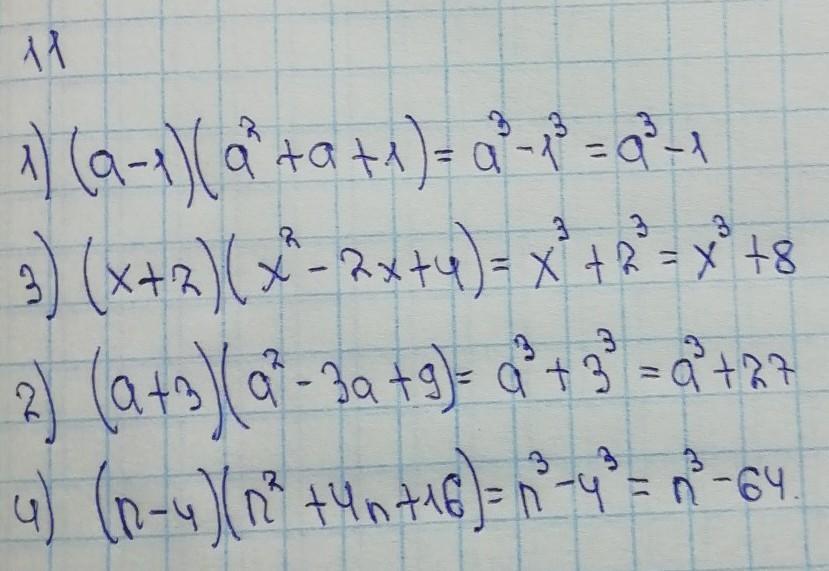 11
1) (a-1)(a²+a+1)= a³-1³ = a³-1
3) (x+2)(x²-2x+4)= x³+2³= x³+8
2) (a+3)(a²-3a+9)= a³+3³ = a³+27
4) (n-4)(n²+4n+16)= n³-4³= n³-64.